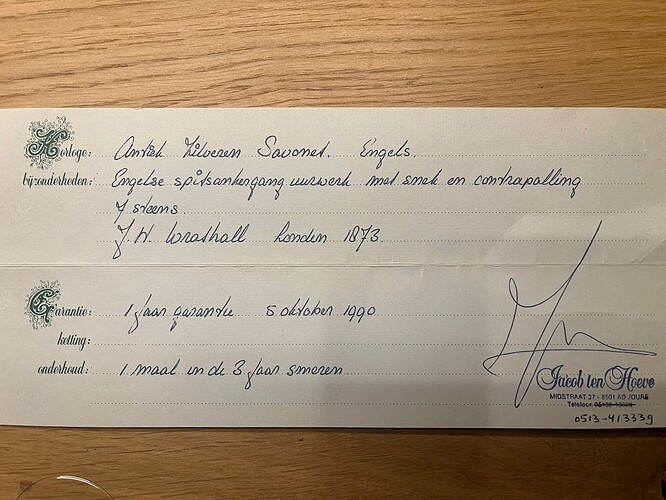 Horloge: Antiek Zilveren Savonet. Engels.
bijzonderheden: Engelse spitsankergang uurwerk met snek en contrapalling
7 steens.
J. H. Wrathall Londen 1873.
Garantie: 1 jaar garantie 5 oktober 1990
ketting:
onderhoud: 1 maal in de 3 jaar smeren.
Jacob ten Hoeve
MIDSTRAAT 37 - 8501 AD JOURE
Telefoon
0513-413339